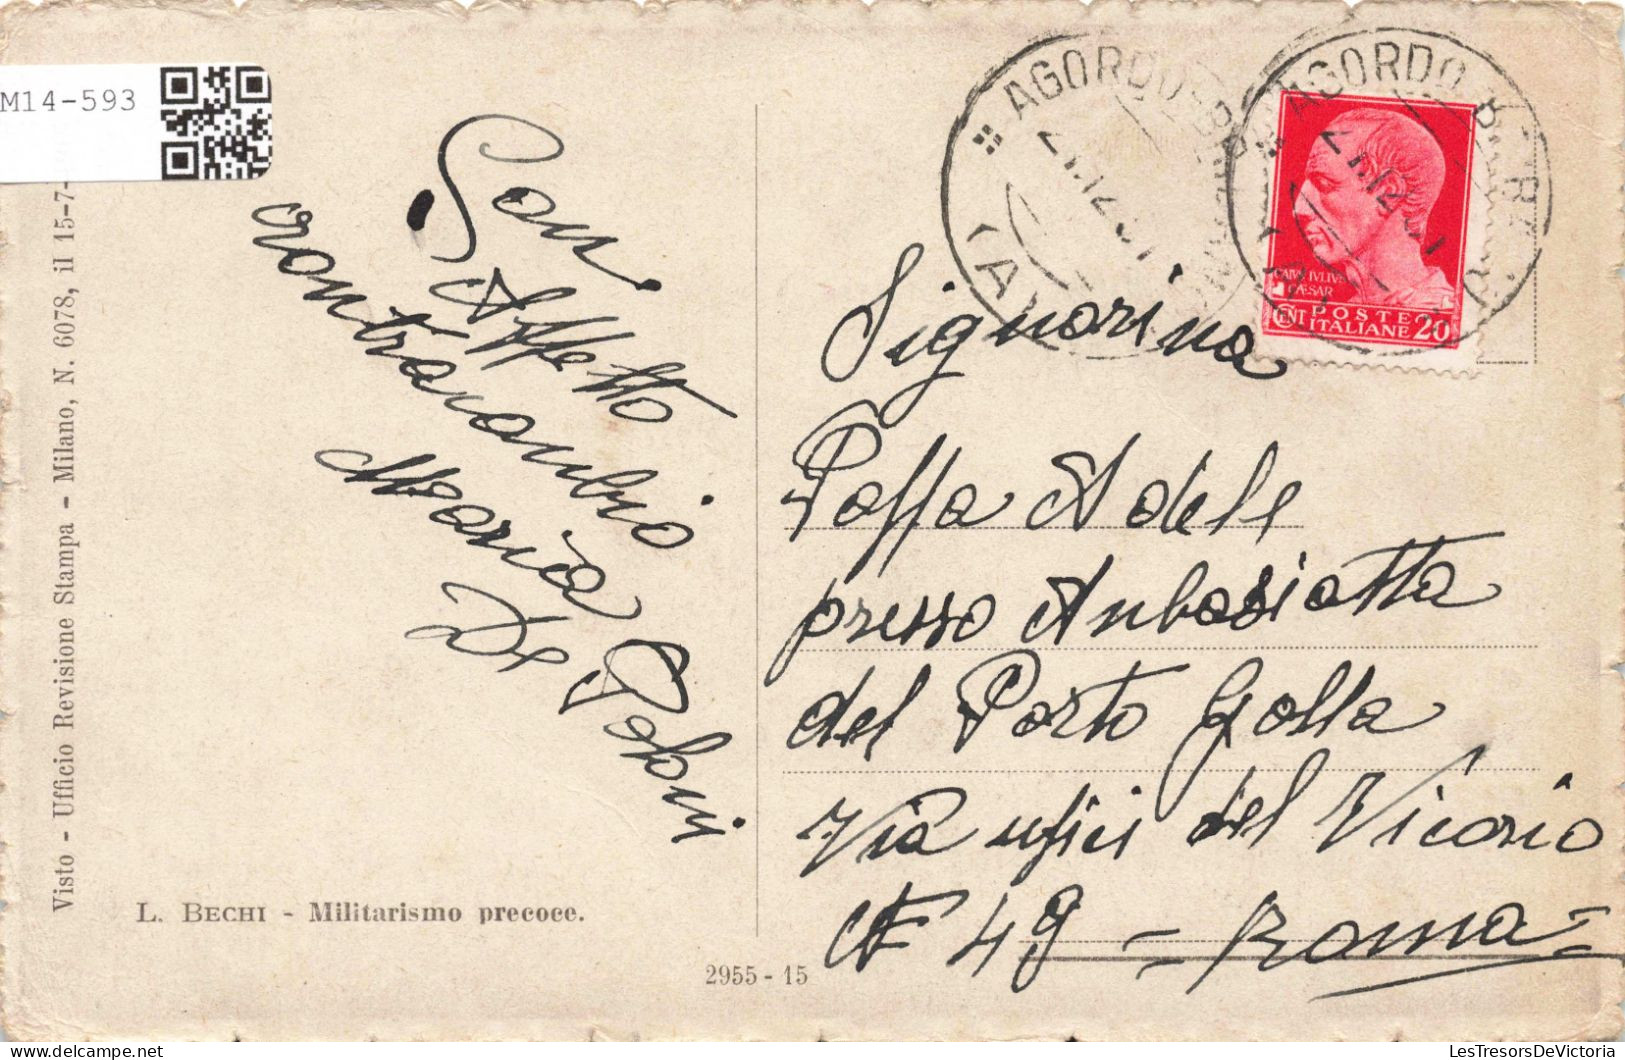 M14-593
Visto - Ufficio Revisione Stampa - Milano, N. 6078, il 15-7-
Con
Affetto
contracambio
Maria
De Toboni
L. BECHI - Militarismo precoce.
2955 - 15
AGORDO
AGORDO
CAIVS IVLIVS
CÆSAR
POSTE
CENT ITALIANE 20
Signorina
Poffa Adele
presso Anbasiatta
del Porto Gallo
Via ufici del Vicario
N 49 - Roma -
LesTresorsDeVictoria